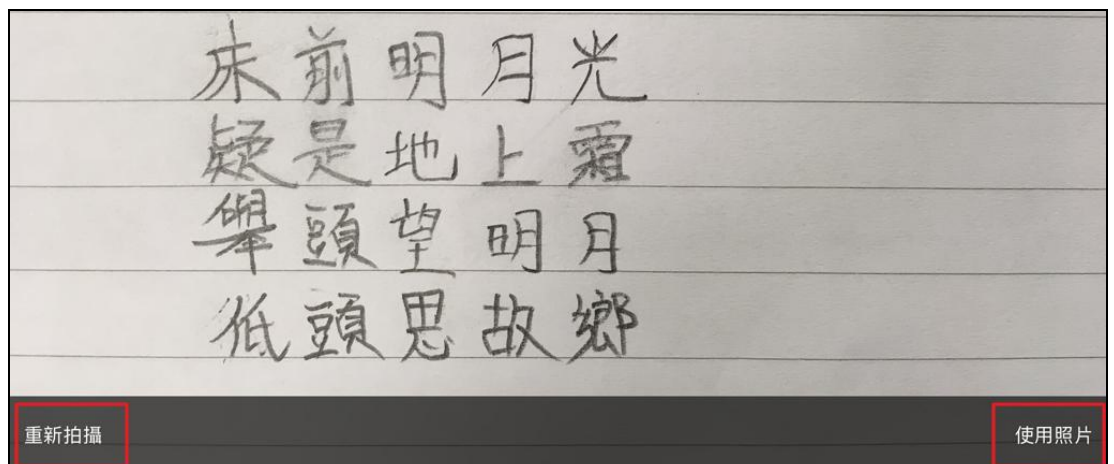 床前明月光
疑是地上霜
舉頭望明月
低頭思故鄉
重新拍攝
使用照片